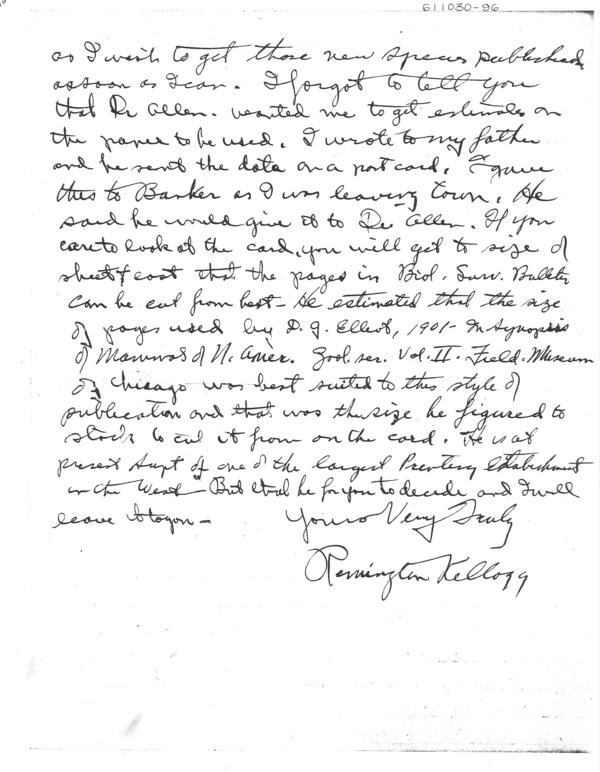 611030-96
as I wish to get those new species published
as soon as I can. I forgot to tell you
that Dr Allen. wanted me to get estimates on
the paper to be used. I wrote to my father
and he sent the data on a post card. I gave
this to Banker as I was leaving town. He
said he would give it to Dr Allen. If you
care to look at the card, you will get to size of
sheet & cost that the pages in Biol. Surv. Bulletin
can be cut from best - He estimated that the size
of pages used by D. G. Elliot, 1901 - In Synopsis
of Mammals of N. Amer. Zool. ser. Vol. II. Field. Museum
of Chicago was best suited to this style of
publication and that was the size he figured to
stock to cut it from on the card. He is at
present Supt of one of the largest Printing establishment
in the West - But it'll be for you to decide and I will
leave it to you -
Yours Very Truly
Remington Kellogg